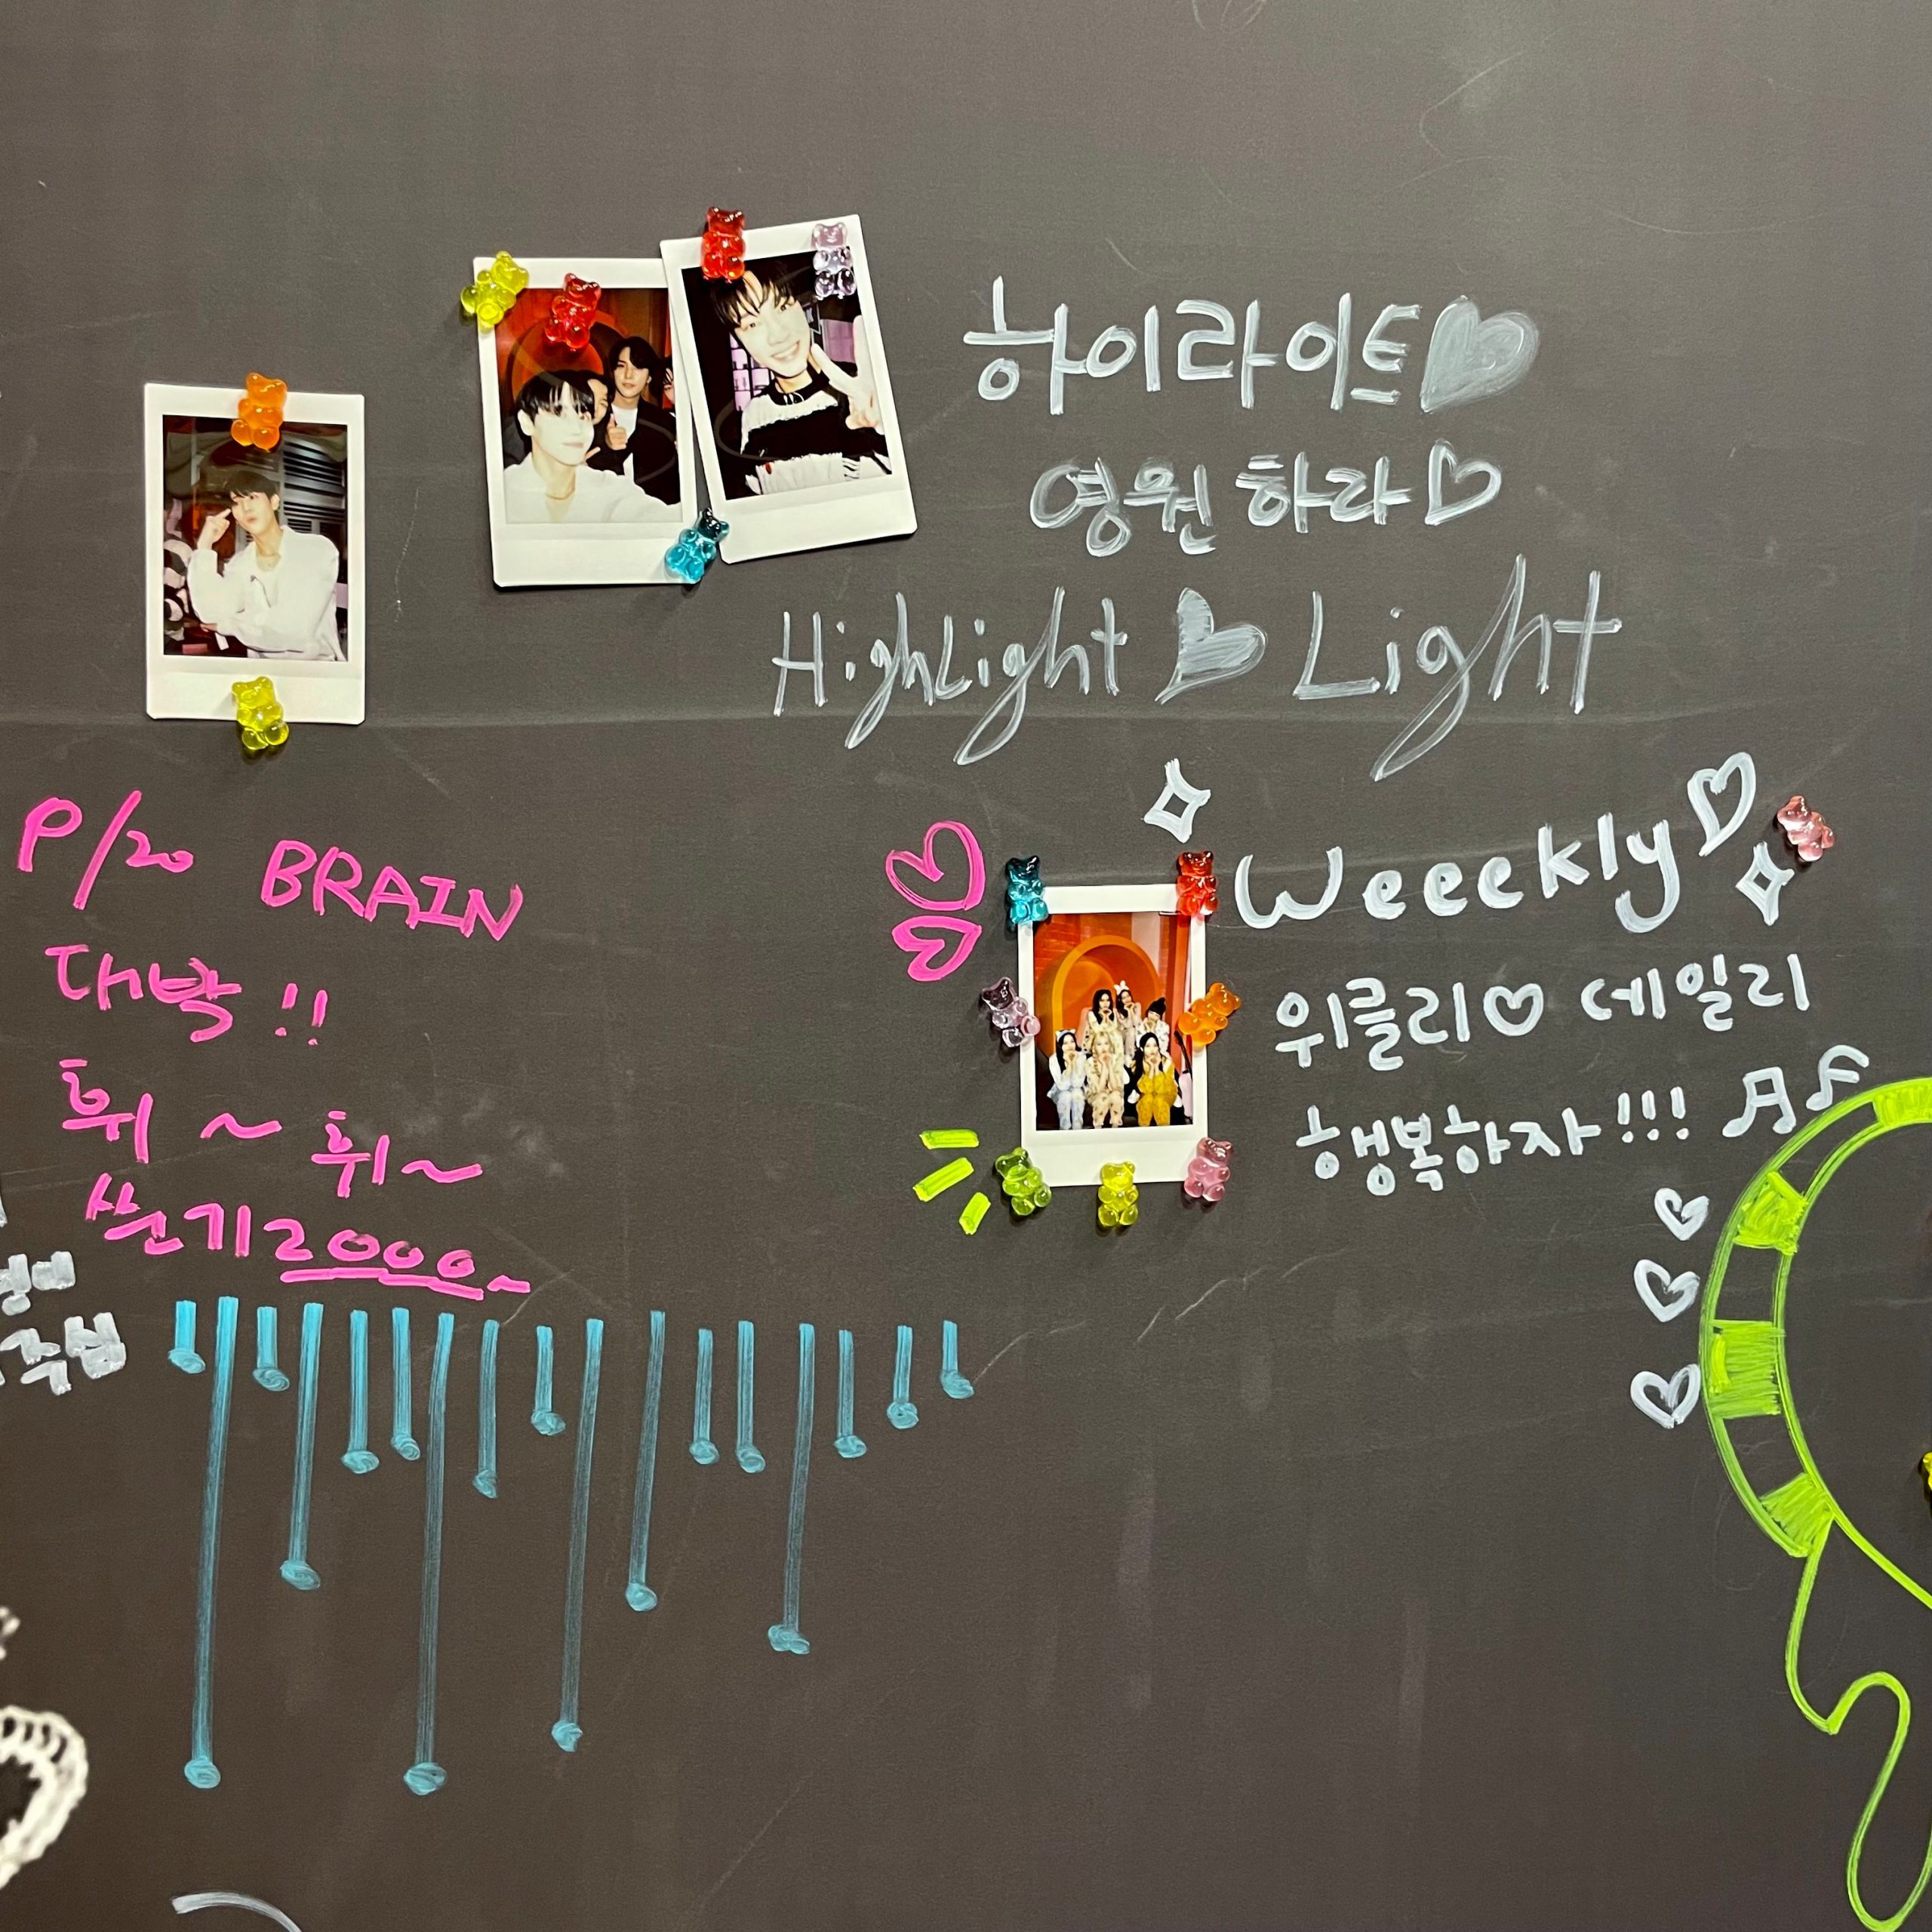 하이라이트
영원하라
HighLight Light
P/20 BRAIN
대박!!
휘~휘~
산기2000~
Weeekly
위클리♡데일리
행복하자!!!